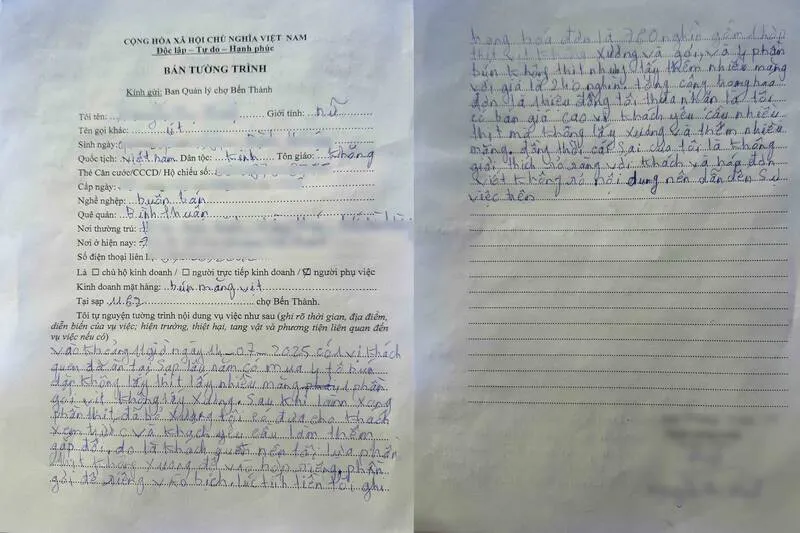 CỘNG HÒA XÃ HỘI CHỦ NGHĨA VIỆT NAM
Độc lập – Tự do – Hạnh phúc
BẢN TƯỜNG TRÌNH
Kính gửi: Ban Quản lý chợ Bến Thành
Tôi tên: Giới tính: nữ
Tên gọi khác: út
Sinh ngày:
Quốc tịch: việt nam Dân tộc: kinh Tôn giáo: không
Thẻ Căn cước/CCCD/ Hộ chiếu số:
Cấp ngày:
Nghề nghiệp: buôn bán
Quê quán: Bình thuận
Nơi thường trú:
Nơi ở hiện nay:
Số điện thoại liên
Là ☐ chủ hộ kinh doanh / ☐ người trực tiếp kinh doanh / ☑ người phụ việc
Kinh doanh mặt hàng: bún măng vịt
Tại sạp 1157 chợ Bến Thành.
Tôi tự nguyện tường trình nội dung vụ việc như sau (ghi rõ thời gian, địa điểm,
diễn biến của vụ việc; hiện trường, thiệt hại, tang vật và phương tiện liên quan đến
vụ việc nếu có)
vào khoảng 11 giờ ngày 14-07-2025 có 1 vị khách
quen đã ăn tại sạp lâu năm có mua 4 tô bún
dặn không lấy thịt lấy nhiều măng 1 phần
gỏi vịt không lấy xương. Sau khi làm xong
phần thịt đã bỏ xương tôi có đưa cho khách
xem trước và khách yêu cầu làm thêm
gấp đôi, do là khách quen nên tôi lựa phần
thịt không xương để vào hộp riêng, phần
gỏi để riêng vào bịch, lúc tính tiền tôi ghi
trong hoá đơn là 780 nghìn gồm 1 hộp
thịt vịt không xương và gỏi, và 4 phần
bún không thịt nhưng lấy thêm nhiều măng
với giá là 240 nghìn. tổng cộng trong hoá
đơn là 1 triệu đồng. tôi thừa nhận là tôi
có bán giá cao vì khách yêu cầu nhiều
thịt mà không lấy xương và thêm nhiều
măng. đồng thời cái sai của tôi là không
giải thích rõ ràng với khách và hoá đơn
viết không rõ nội dung nên dẫn đến sự
việc trên